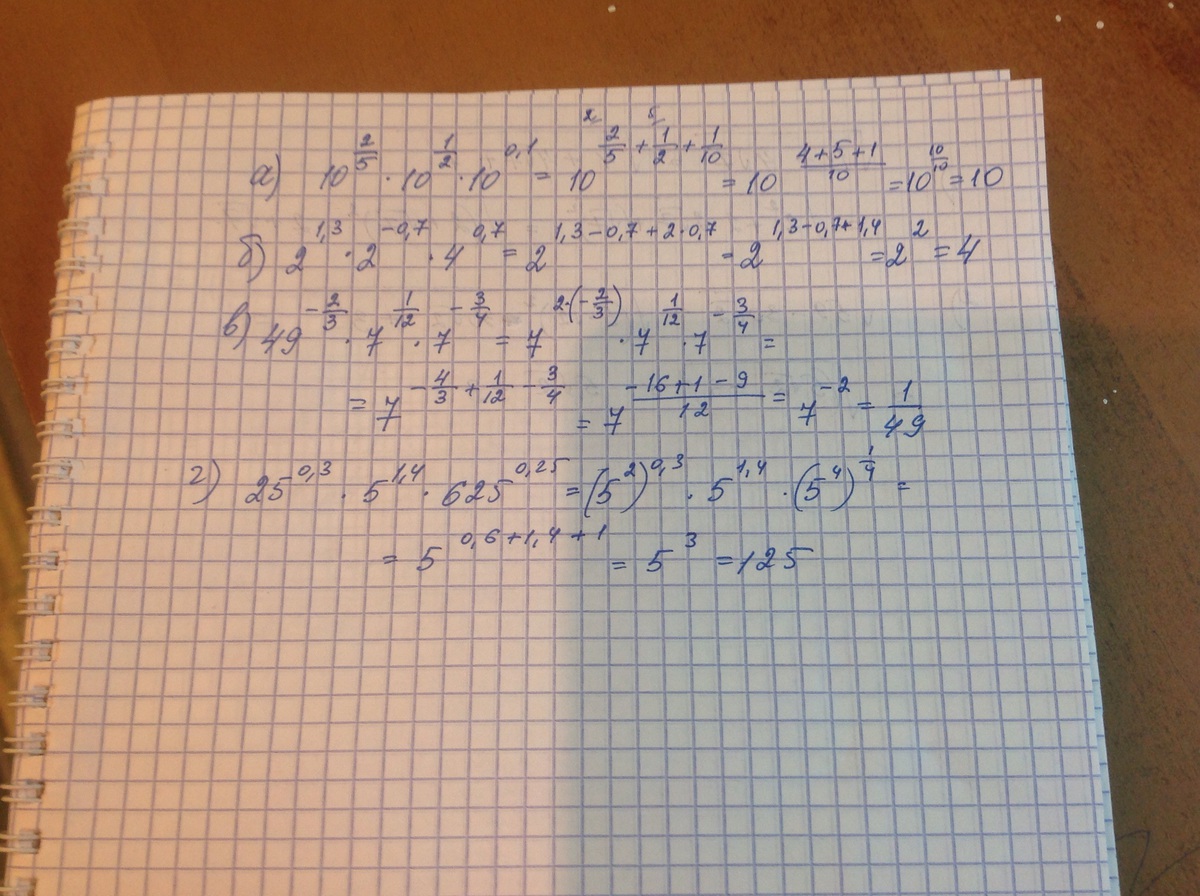 а) 10^(2/5) · 10^(1/2) · 10^(0,1) = 10^(2/5 + 1/2 + 1/10) = 10^((4+5+1)/10) = 10^(10/10) = 10
б) 2^(1,3) · 2^(-0,7) · 4^(0,7) = 2^(1,3-0,7+2·0,7) = 2^(1,3-0,7+1,4) = 2^2 = 4
в) 49^(-2/3) · 7^(1/12) · 7^(-3/4) = 7^(2·(-2/3)) · 7^(1/12) · 7^(-3/4) =
= 7^(-4/3 + 1/12 - 3/4) = 7^((-16+1-9)/12) = 7^(-2) = 1/49
г) 25^(0,3) · 5^(1,4) · 625^(0,25) = (5^2)^(0,3) · 5^(1,4) · (5^4)^(1/4) =
= 5^(0,6+1,4+1) = 5^3 = 125